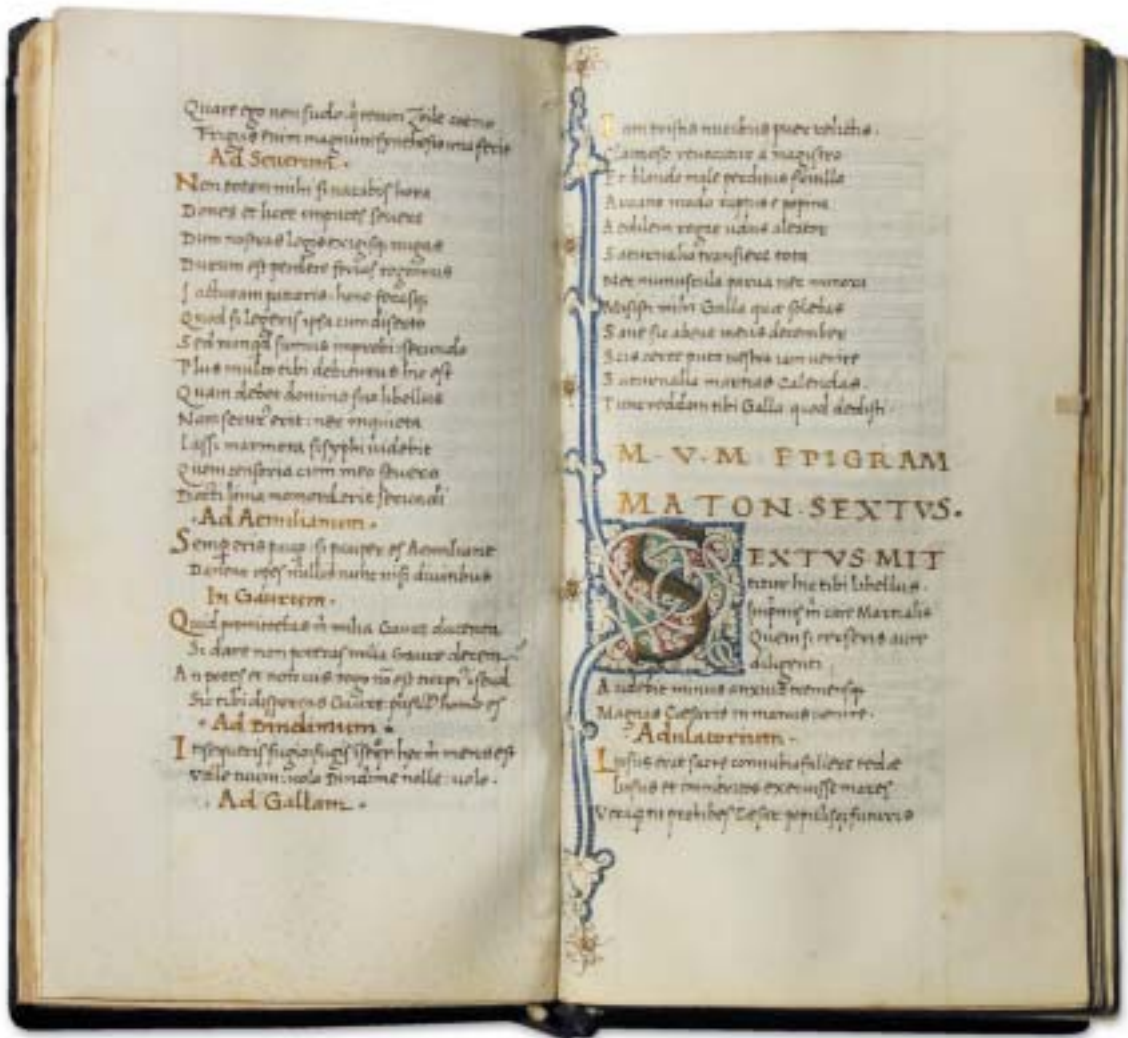 Quare ego non sudo. qui tecum Zoile coeno
Frigus enim magnum synthesis una facit
Ad Severum.
Non totam mihi si vacabis hora
Dones et licet imputes severe
Dum nostras legis exigisque nugas
Durum est perdere ferias rogamus
Iacturam patiaris. hanc ferasque
Quod si legeris ipsa cum diserto
Sed nunquid sumus improbi secundo
Plus multo tibi debiturus hic est
Quam debet domino suo libellus
Nam securus erit: nec inquieta
Lassi marmora sisyphi videbit
Quem censoria cum meo severo
Docti lima momorderit secundi
.Ad Aemilianum.
Semper eris pauper si pauper es Aemiliane
Dantur opes nullis nunc nisi divitibus
In Gaurum.
Quid promittebas mihi milia Gaure ducenta
Si dare non poteras milia Gaure decem
An potes et non vis rogo non est turpius istud
I tibi dispereas Gaure: pusillus homo es
. Ad Dindimum .
Insequeris fugio: fugis insequor hec mihi mens est
Velle tuum: nolo Dindime nolle: volo.
. Ad Gallam .
Iam tristis nucibus puer relictis.
Clamoso revocatur a magistro
Et blando male perditus fritillo
Arcana modo raptus e popina
Aedilem rogat udus aleator
Saturnalia transiere tota
Nec munuscula parva nec minora
Misisti mihi Galla quae solebas
Sane sic abeat meus december
Scis certe puto vestra iam venire
Saturnalia martias Calendas.
Tunc reddam tibi Galla quod dedisti.
M. V. M. EPIGRAM
MATON. SEXTVS.
SEXTVS MIT
titur hic tibi libellus.
In primis mihi care Martialis
Quem si terseris aure
diligenti
Audebit minus anxius tremensque
Magnas Caesaris in manus venire.
Adulatorium.
Lusus erat sacre connubia fallere tede
lusus et immeritos execuisse mares
Utraque tu prohibes Caesar populisque futuris